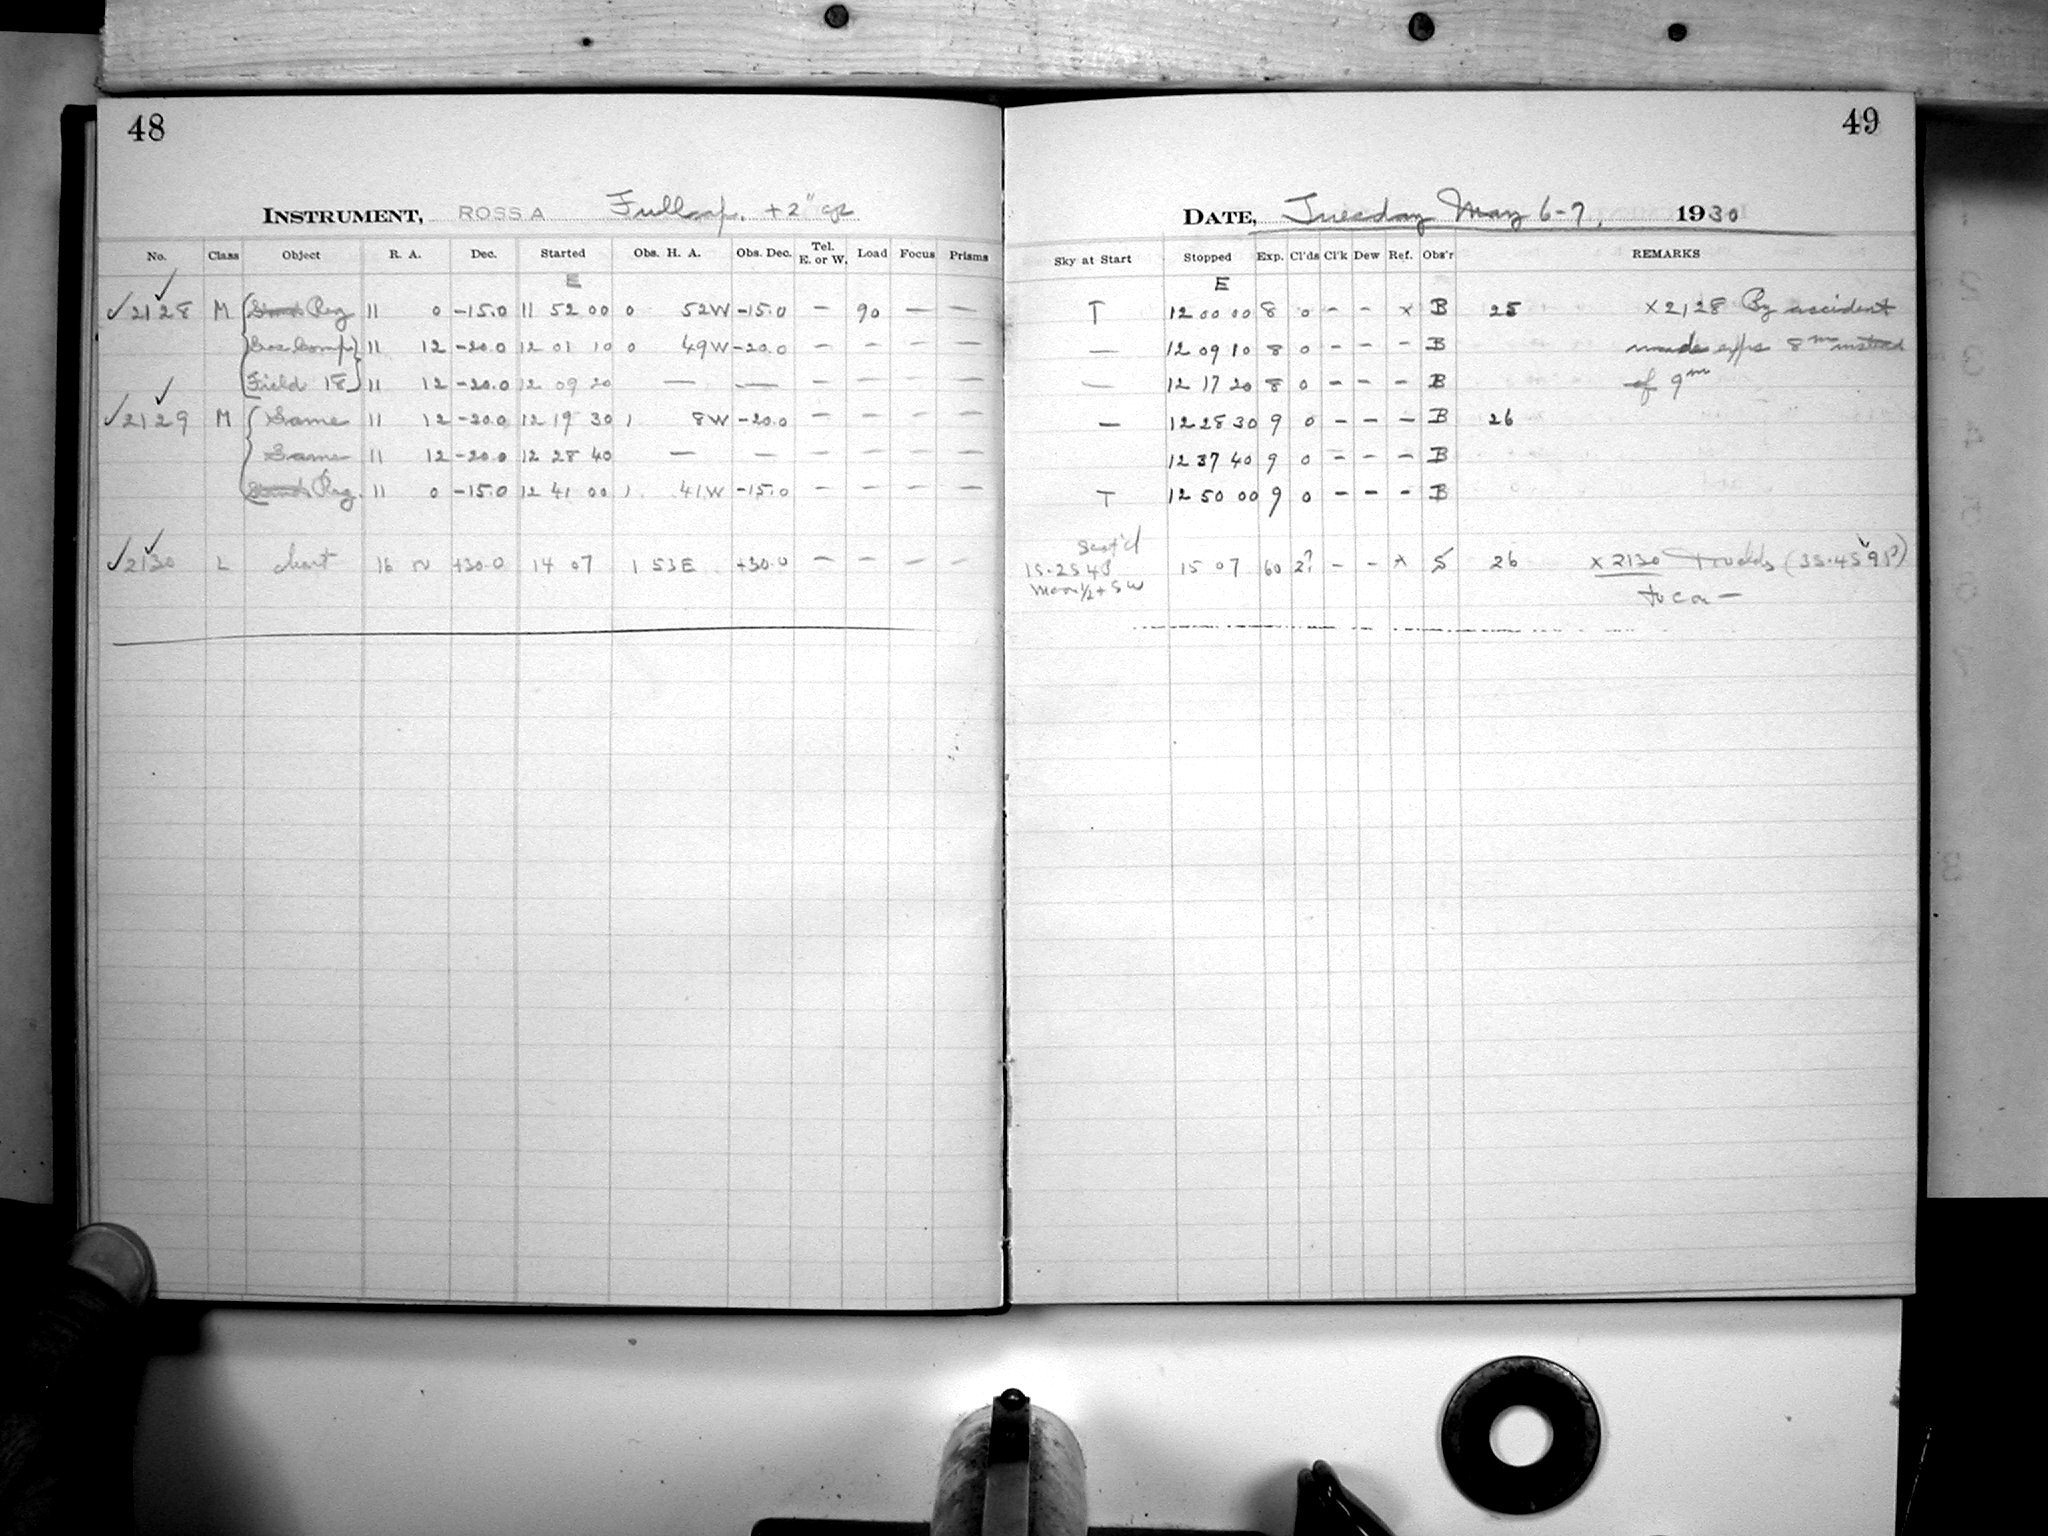 48
INSTRUMENT, ROSS A Full ap. + 2"
No. Class Object R. A. Dec. Started Obs. H. A. Obs. Dec. Tel. E. or W. Load Focus Prisms
E
2128 M Reg 11 0 -15.0 11 52 00 0 52W -15.0 — 90 — —
11 12 -20.0 12 01 10 0 49W -20.0 — — — —
Field 18 11 12 -20.0 12 09 20 — — — — — —
2129 M Same 11 12 -20.0 12 19 30 1 8W -20.0 — — — —
Same 11 12 -20.0 12 28 40 — — — — — —
Reg. 11 0 -15.0 12 41 00 1 41W -15.0 — — — —
2130 L chart 16 +30.0 14 07 1 53E +30.0 — — — —
49
DATE, Tuesday May 6-7, 1930
Sky at Start Stopped Exp. Cl'ds Cl'k Dew Ref. Obs'r REMARKS
E
T 12 00 00 8 0 - - x B 25 x2128 By accident
— 12 09 10 8 0 - - - B made exps 8m instead
— 12 17 20 8 0 - - - B of 9m
— 12 28 30 9 0 - - - B 26
12 37 40 9 0 - - - B
T 12 50 00 9 0 - - - B
Scat'd
15.2543 15 07 60 2? - - x S 26 x 2130
Moon 1/2+ SW